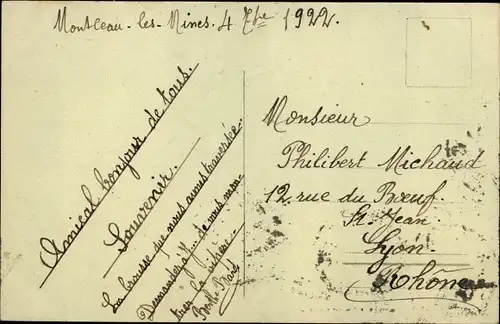 Montceau-les-Mines. 4 7bre 1922.
Amical bonjour de tous.
Souvenir.
La brousse que nous avons traversée.
Demander à je vous mon-
Monsieur
Philibert Michaud
12, rue du Bœuf.
St. Jean
Lyon
Rhône